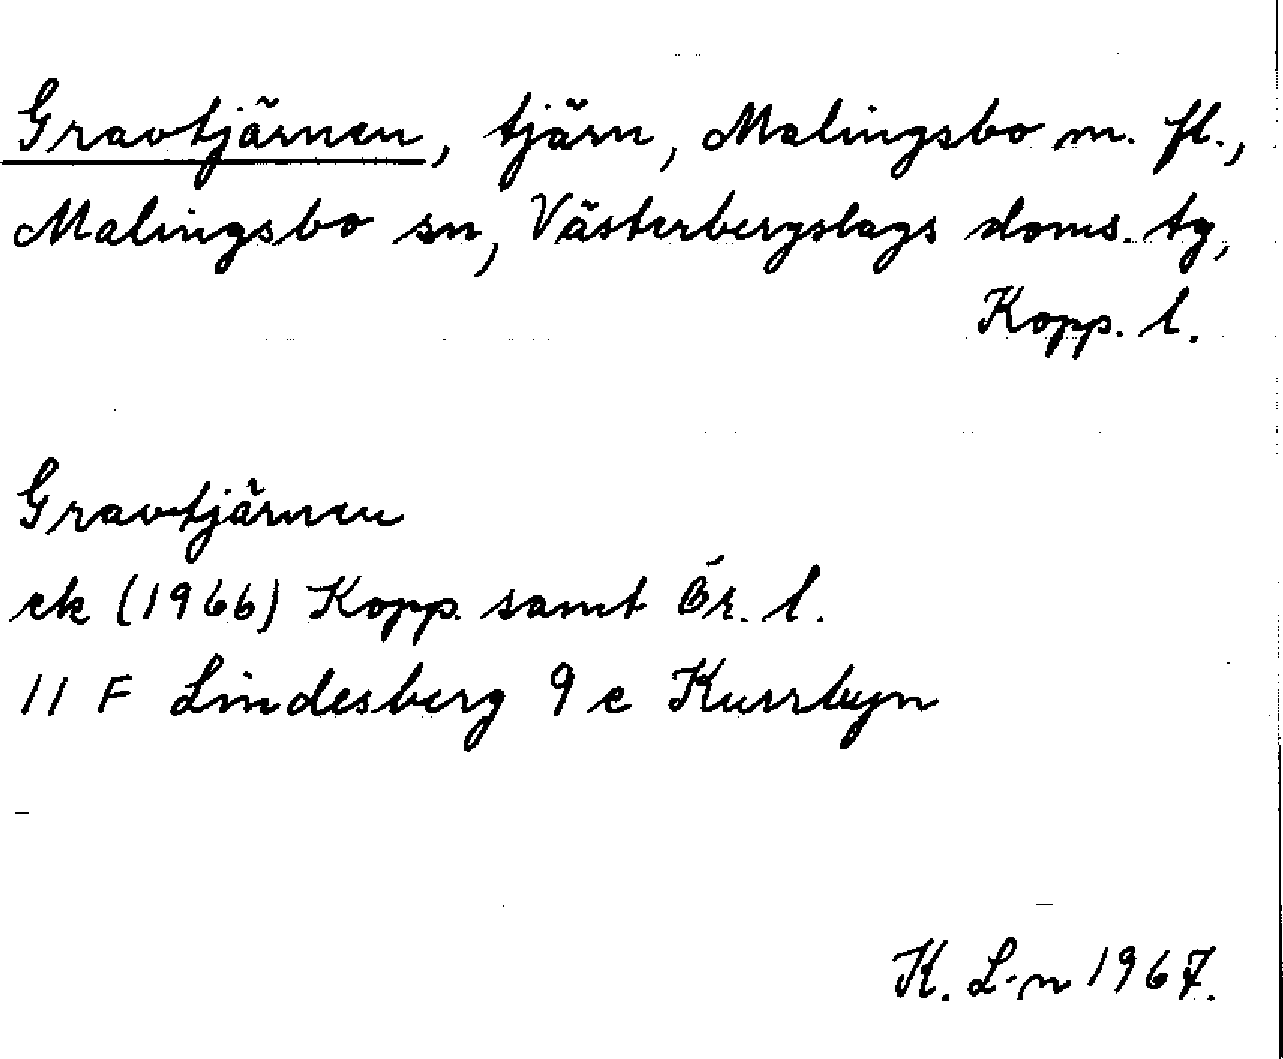 Gravtjärnen, tjärn, Malingsbo m. fl.,
Malingsbo sn, Västerbergslags doms. tg,
Kopp. l.
Gravtjärnen
ek (1966) Kopp. samt Ör. l.
11 F Lindesberg 9 e Kusrbyn
K. L-n 1967.